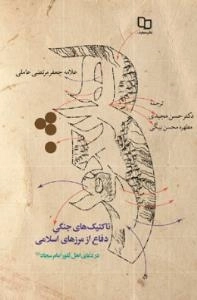 نشر معارف
علامه جعفر مرتضی عاملی
ترجمهٔ
دکتر حسن مجیدی
مطهره محسن بیگی
تاکتیک‌های جنگی
دفاع از مرزهای اسلامی
در دعای اهل ثغور امام سجاد